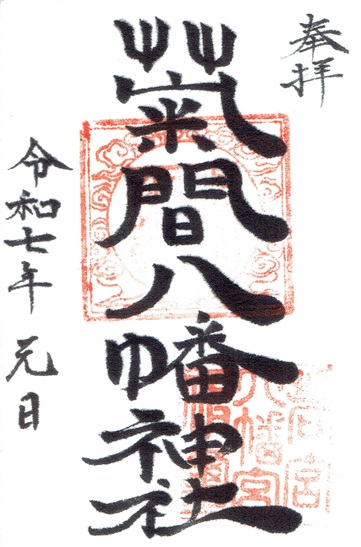 奉拝
菊間八幡神社
令和七年 元日
八幡宮